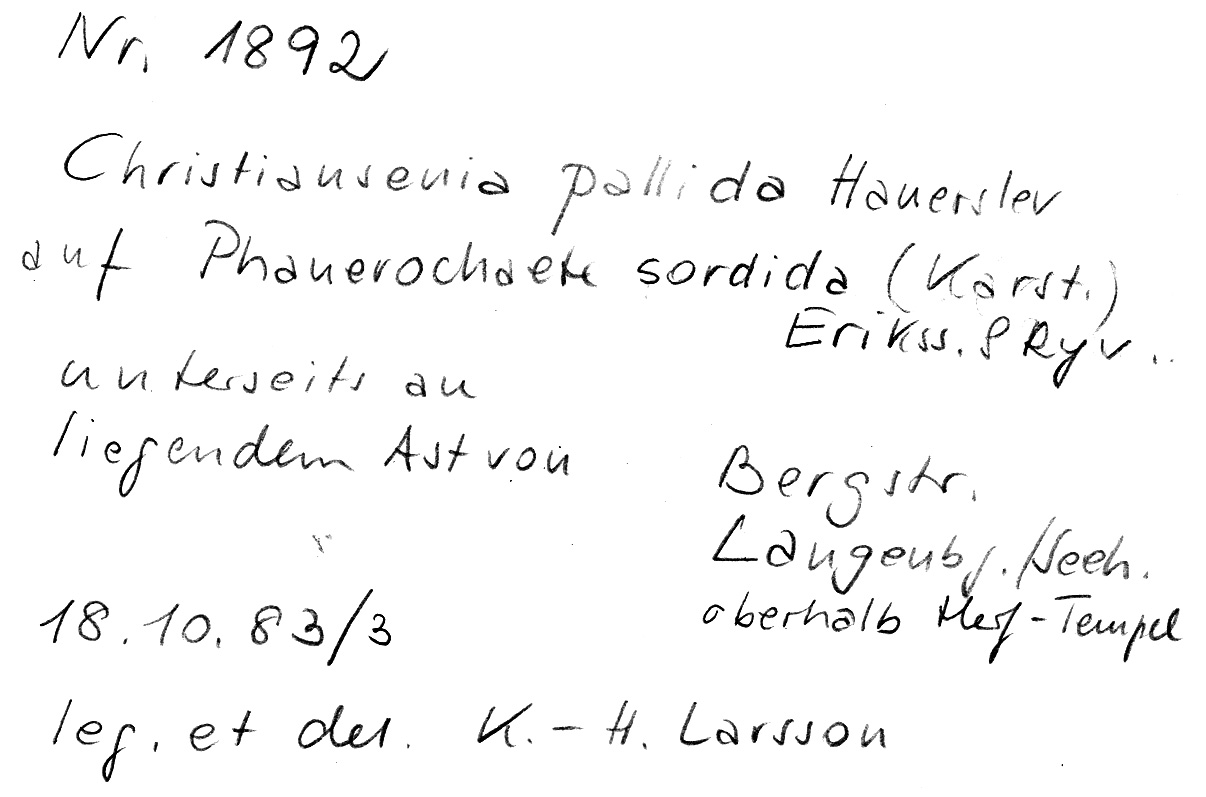 Nr. 1892
Christiansenia pallida Hauerslev
auf Phanerochaete sordida (Karst.)
Erikss. & Ryv..
unterseits an
liegendem Ast von
Bergstr.
Langenbg./Seeh.
oberhalb -Tempel
18.10.83/3
leg. et det. K.-H. Larsson